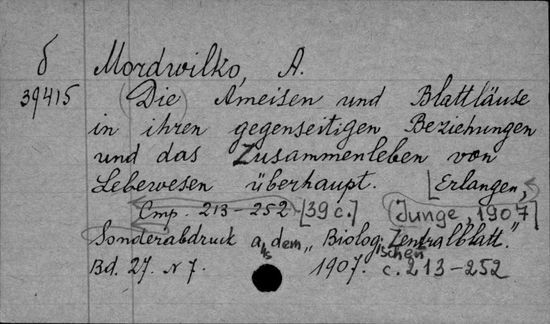 б Mordwilko, A.
39415 (Die) Ameisen und Blattläuse
in ihren gegenseitigen Beziehungen
und das Zusammenleben von
Lebewesen überhaupt. [Erlangen,
Cmp. 213-252 [39 c.] (Junge, 1907]
Sonderabdruck aus dem „Biologischen Zentralblatt."
Bd. 27. N 7. 1907. c. 213-252